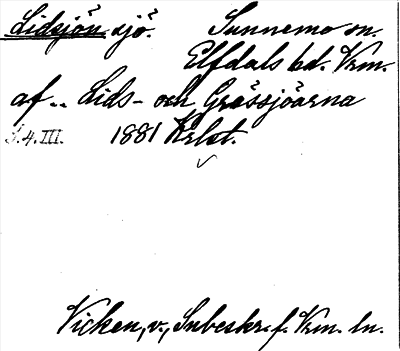 Lidsjön sjö. Sunnemo sn.
Elfdals hd. Vrm.
af .. Lids- och Grässjöarna
J.4.III. 1881 Krlst.
Vicken, v., Inbeskr. f. Vrm. ln.